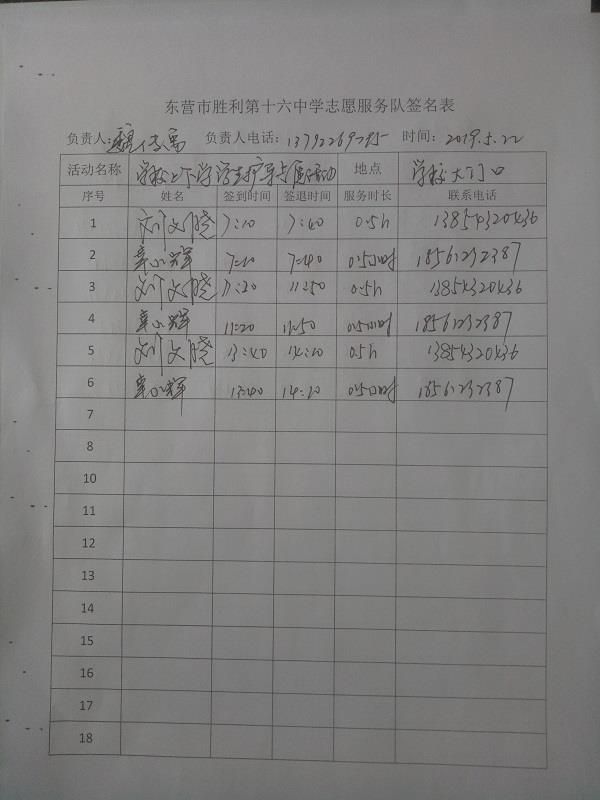 东营市胜利第十六中学志愿服务队签名表
负责人: 负责人电话: 13792269795 时间: 2019.5.22
活动名称 学校上下学 地点 学校大门口
序号 姓名 签到时间 签退时间 服务时长 联系电话
1 刘文晓 7:10 7:40 0.5h 13854320436
2 辛小辉 7:10 7:40 0.5小时 18561232387
3 刘文晓 11:20 11:50 0.5h 13854320436
4 辛小辉 11:20 11:50 0.5小时 18561232387
5 刘文晓 13:40 14:10 0.5h 13854320436
6 辛小辉 13:40 14:10 0.5小时 18561232387
7
8
9
10
11
12
13
14
15
16
17
18